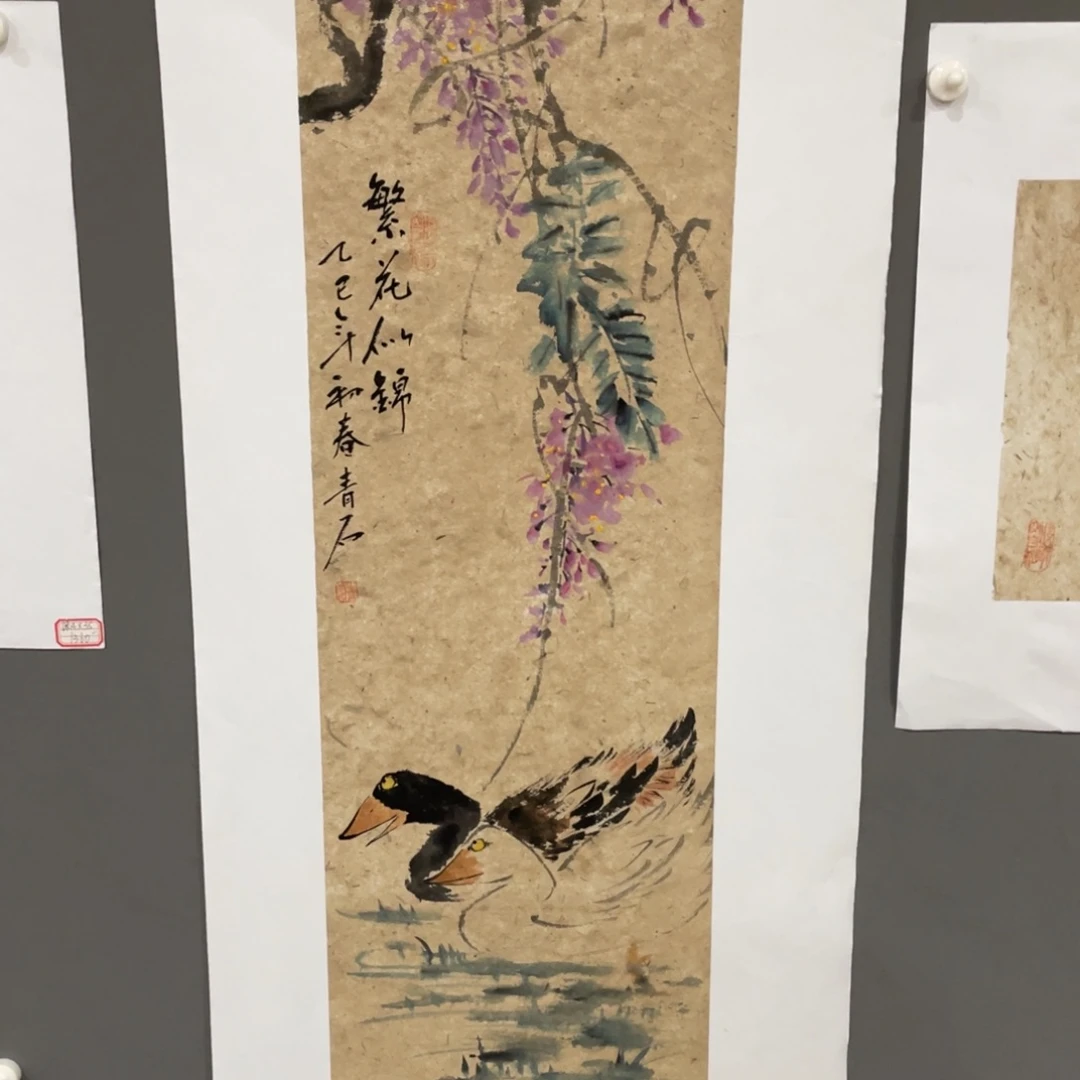 繁花似錦
乙巳年初春青石